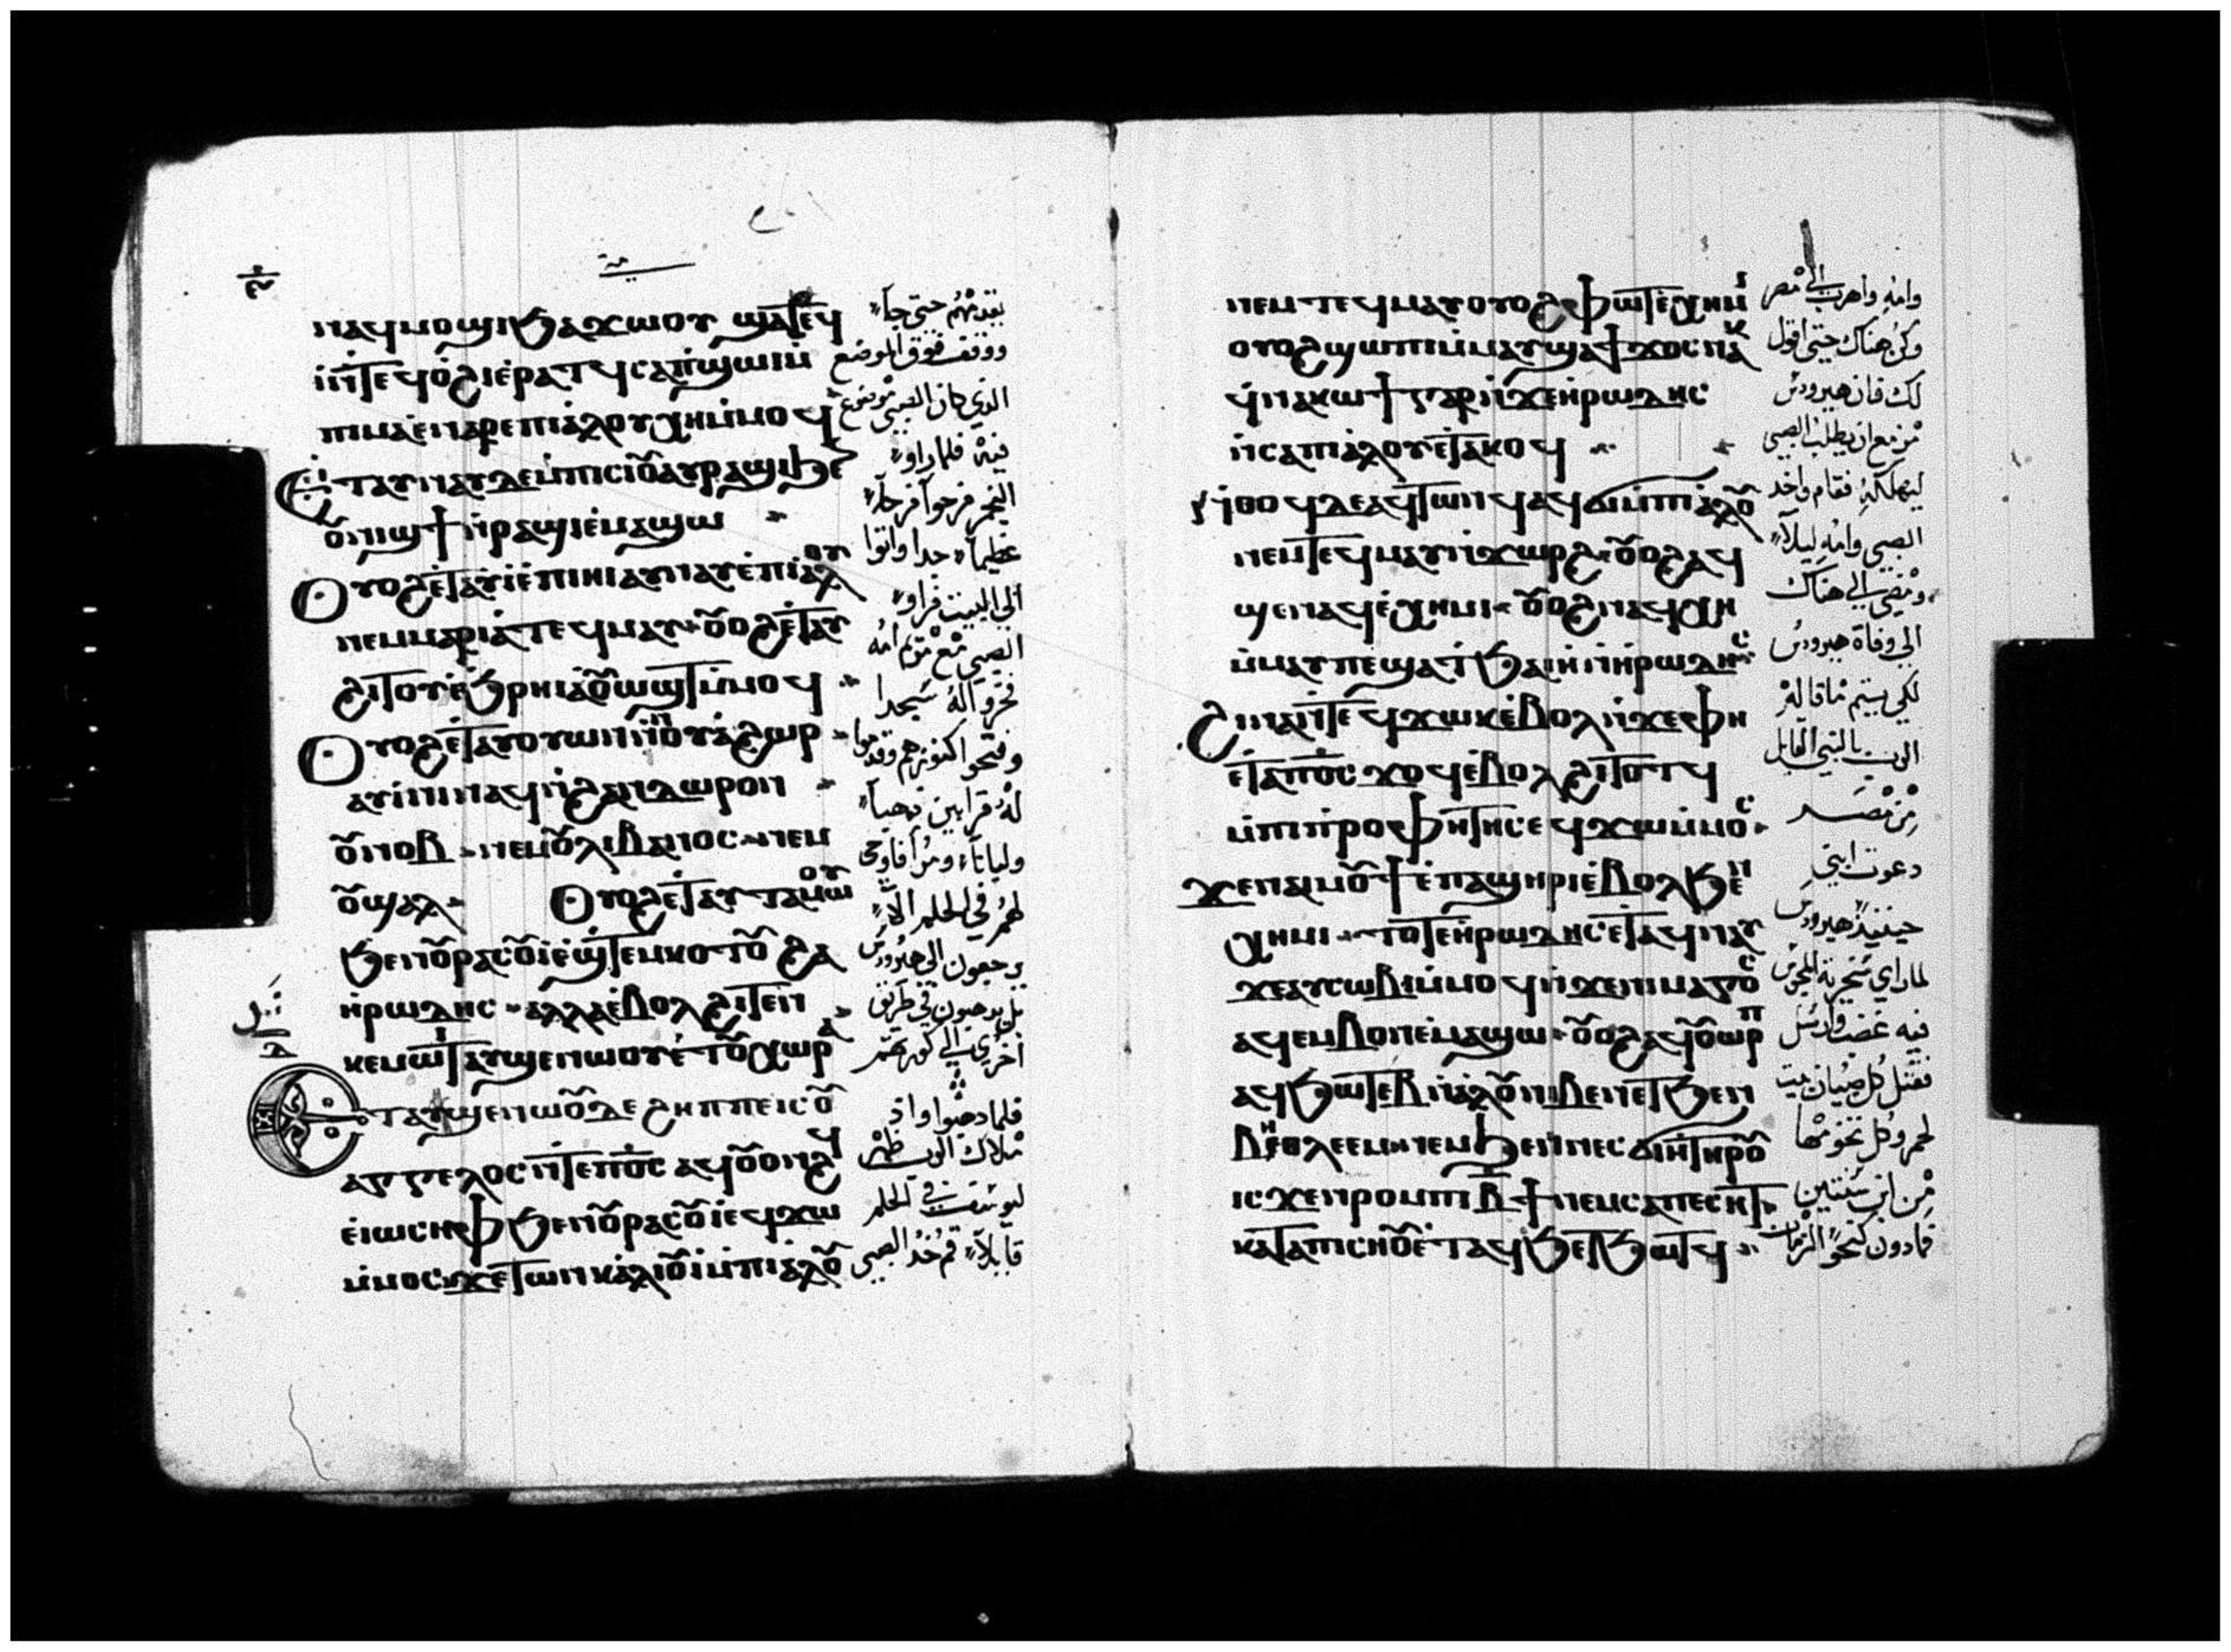 ⲛⲁϥⲙⲟϣⲓ ϧⲁϫⲱⲟⲩ ϣⲁⲧⲉϥ
ⲛ̀ⲧⲉϥⲟ̀ϩⲓ ⲉ̀ⲣⲁⲧϥ ⲥⲁⲡ̀ϣⲱⲓ ⲙ̀
ⲡⲓⲙⲁ ⲉ̀ⲛⲁⲣⲉ ⲡⲓⲁ̀ⲗⲟⲩ ⲭⲏ ⲙ̀ⲙⲟϥ
Ⲉ̀ⲧⲁⲩⲛⲁⲩ ⲇⲉ ⲉ̀ⲡⲓⲥⲓⲟⲩ ⲁⲩⲣⲁϣⲓ ϧⲉ
ⲟⲩⲛⲓϣϯ ⲛ̀ⲣⲁϣⲓ ⲉ̀ⲙⲁϣⲱ
Ⲟⲩⲟϩ ⲉ̀ⲧⲁⲩⲓ̀ ⲉ̀ⲡⲓⲏⲓ ⲁⲩⲛⲁⲩ ⲉ̀ⲡⲓⲁ̀ⲗⲟⲩ
ⲛⲉⲙ ⲙⲁⲣⲓⲁ̀ ⲧⲉϥⲙⲁⲩ ⲟⲩⲟϩ ⲉ̀ⲧⲁⲩ
ϩⲓⲧⲟⲩ ⲉ̀ϧⲣⲏⲓ ⲁⲩⲟⲩⲱϣⲧ ⲙ̀ⲙⲟϥ
Ⲟⲩⲟϩ ⲉ̀ⲧⲁⲩⲟⲩⲱⲛ ⲛ̀ⲛⲟⲩⲁ̀ϩⲱⲣ
ⲁⲩⲓ̀ⲛⲓ ⲛⲁϥ ⲛ̀ϩⲁⲛⲇⲱⲣⲟⲛ
ⲟⲩⲛⲟⲩⲃ ⲛⲉⲙ ⲟⲩⲗⲓⲃⲁⲛⲟⲥ ⲛⲉⲙ
ⲟⲩϣⲁⲗ Ⲟⲩⲟϩ ⲉ̀ⲧⲁⲩⲧⲁⲙⲱⲟⲩ
ϧⲉⲛ ⲟⲩⲣⲁⲥⲟⲩⲓ̀ ⲉ̀ϣⲧⲉⲙⲕⲟⲧⲟⲩ ϩⲁ
ⲏ̀ⲣⲱⲇⲏⲥ ⲁⲗⲗⲁ ⲉ̀ⲃⲟⲗ ϩⲓⲧⲉⲛ
ⲕⲉⲙⲱⲓⲧ ⲁⲩϣⲉⲛⲱⲟⲩ ⲉ̀ⲧⲟⲩⲭⲱⲣⲁ
Ⲉⲧⲁⲩϣⲉⲛⲱⲟⲩ ⲇⲉ ϩⲏⲡⲡⲉ ⲓⲥ ⲟⲩ
ⲁⲅⲅⲉⲗⲟⲥ ⲛ̀ⲧⲉ ⲡⲟ̅ⲥ̅ ⲁϥⲟⲩⲟⲛϩϥ
ⲉ̀ⲓⲱⲥⲏⲫ ϧⲉⲛ ⲟⲩⲣⲁⲥⲟⲩⲓ̀ ⲉϥϫⲱ
ⲙ̀ⲙⲟⲥ ϫⲉ ⲧⲱⲛⲕ ⲁ̀ⲗⲓⲟⲩⲓ̀ ⲙ̀ⲡⲓⲁ̀ⲗⲟⲩ
يتقدمهم حتى جآ
ووقف فوق الموضع
الذي كان الصبي موضوع
فيه فلما راوا
النجم فرحوا فرحآ
عظيمآ جدا واتوا
الي البيت فراوا
الصبي مع مريم امه
فخروا له سجدا
وفتحوا اكنوزهم وقدموا
له قرابين ذهبآ
ولبانآ ومرآ فاوحي
لهم في الحلم الا
يرجعون الي هيرودس
بل يذهبون في طريق
اخري الي كورتهم
فلما ذهبوا واذ
ملاك الرب ظهر
ليوسف في الحلم
قايلآ قم خذ الصبي
ⲛⲉⲙ ⲧⲉϥⲙⲁⲩ ⲟⲩⲟϩ ⲫⲱⲧ ⲉ̀ⲭⲏⲙⲓ
ⲟⲩⲟϩ ϣⲱⲡⲓ ⲙ̀ⲙⲁⲩ ϣⲁϯϫⲟⲥ ⲛⲁⲕ
ϥ̀ⲛⲁⲕⲱϯ ⲅⲁⲣ ⲛ̀ϫⲉ ⲏ̀ⲣⲱⲇⲏⲥ
ⲛ̀ⲥⲁ ⲡⲓⲁ̀ⲗⲟⲩ ⲉ̀ⲧⲁⲕⲟϥ
ⲛ̀ⲑⲟϥ ⲇⲉ ⲁϥⲧⲱⲛϥ ⲁϥϭⲓ ⲙ̀ⲡⲓⲁ̀ⲗⲟⲩ
ⲛⲉⲙ ⲧⲉϥⲙⲁⲩ ⲛ̀ϫⲱⲣϩ ⲟⲩⲟϩ ⲁϥ
ϣⲉⲛⲁϥ ⲉ̀ⲭⲏⲙⲓ ⲟⲩⲟϩ ⲛⲁϥⲭⲏ
ⲙ̀ⲙⲁⲩ ⲡⲉ ϣⲁ ⲧ̀ϧⲁⲏ̀ ⲛ̀ⲏⲣⲱⲇⲏⲥ
ϩⲓⲛⲁ ⲛ̀ⲧⲉϥϫⲱⲕ ⲉ̀ⲃⲟⲗ ⲛ̀ϫⲉ ⲫⲏ
ⲉ̀ⲧⲁ ⲡⲟ̅ⲥ̅ ϫⲟϥ ⲉ̀ⲃⲟⲗ ϩⲓⲧⲟⲧϥ
ⲙ̀ⲡⲓⲡ̀ⲣⲟⲫⲏⲧⲏⲥ ⲉϥϫⲱ ⲙ̀ⲙⲟⲥ
ϫⲉ ⲁⲓⲙⲟⲩϯ ⲉ̀ⲡⲁϣⲏⲣⲓ ⲉ̀ⲃⲟⲗ ϧⲉⲛ
ⲭⲏⲙⲓ ⲧⲟⲧⲉ ⲏ̀ⲣⲱⲇⲏⲥ ⲉ̀ⲧⲁϥⲛⲁⲩ
ϫⲉ ⲁⲩⲥⲱⲃⲓ ⲙ̀ⲙⲟϥ ⲛ̀ϫⲉ ⲛⲓⲙⲁⲅⲟⲥ
ⲁϥⲉⲙⲃⲟⲛ ⲉ̀ⲙⲁϣⲱ ⲟⲩⲟϩ ⲁϥⲟⲩⲱⲣⲡ
ⲁϥϧⲱⲧⲉⲃ ⲛ̀ⲁ̀ⲗⲟⲩ ⲛⲓⲃⲉⲛ ⲉⲧϧⲉⲛ
ⲃⲏⲑⲗⲉⲉⲙ ⲛⲉⲙ ϧⲉⲛ ⲛⲉⲥϭⲓⲏ̀ ⲧⲏⲣⲟⲩ
ⲓⲥϫⲉⲛ ⲣⲟⲙⲡⲓ ⲃ̅ϯ ⲛⲉⲙ ⲥⲁⲡⲉⲥⲏⲧ
ⲕⲁⲧⲁ ⲡⲓⲥⲏⲟⲩ ⲉ̀ⲧⲁϥϧⲉⲧϧⲱⲧϥ
وامه واهرب الي مصر
وكن هناك حتى اقول
لك فان هيرودس
مزمع ان يطلب الصبي
ليهلكه فقام واخد
الصبي وامه ليلآ
ومضي الي هناك
الي وفاة هيرودس
لكي يتم ما قاله
الرب بالنبي القايل
من مصر
دعوت ابني
حينيذ هيرودس
لما راي سخرية المجوس
فيه غضب وارسل
فقتل كل صبيان بيت
لحم وكل تخومها
من ابن سنتين
فما دون كنحو الزمان